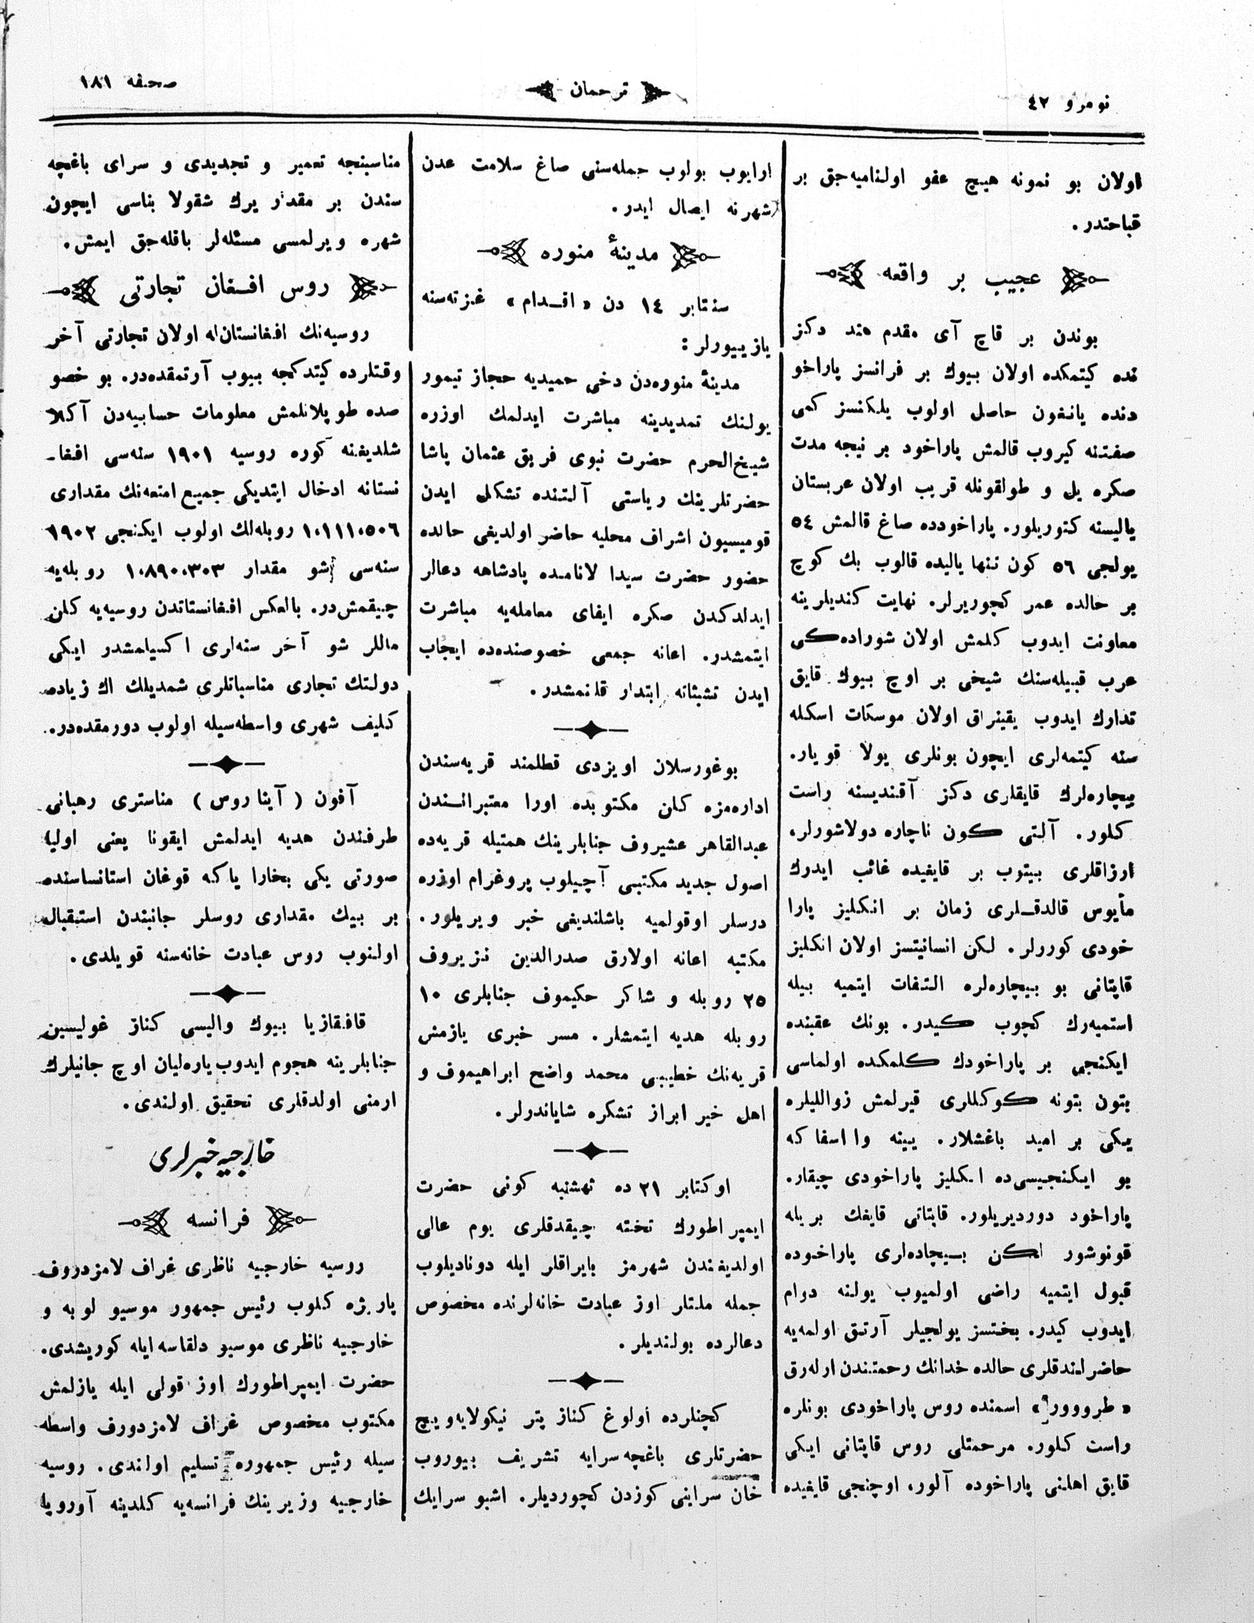 نومرو ٤٢
ترجمان
صحفه ١٨١
اولان بو نمونه هيچ عفو اولناميه‌جق بر
قباحتدر.
عجيب بر واقعه
بوندن بر قاچ آى مقدم هند دكز
نده كيتمكده اولان بيوك بر فرانسز پاراخو
دنده يانغون حاصل اولوب يلكنسز كمى
صفتنه كيروب قالمش پاراخود بر نيجه مدت
صكره يل و طولقونله قريب اولان عربستان
ياليسنه كتوريلور. پاراخودده صاغ قالمش ٥٤
يولجى ٥٦ كون تنها ياليده قالوب بك كوچ
بر حالده عمر كچوريرلر. نهايت كنديلرينه
معاونت ايدوب كلمش اولان شوراده‌كى
عرب قبيله‌سنك شيخى بر اوچ بيوك قايق
تدارك ايدوب يقينراق اولان موسكات اسكله
سنه كيتمه‌لرى ايچون بونلرى يولا قويار.
بيچاره‌لرك قايقلرى دكز آقنديسنه راست
كلور. آلتى كون ناچاره دولاشورلر،
ارزاقلرى بيتوب بر قايفيده غائب ايدرك
مأيوس قالدقلرى زمان بر انكليز پارا
خودى كوررلر. لكن انسانيتسز اولان انكليز
قاپتانى بو بيچاره‌لره التفات ايتميه بيله
استميه‌رك كچوب كيدر. بونك عقبنده
ايكنجى بر پاراخودك كلمكده اولماسى
بتون بتونه كوكللرى قيرلمش زواليلره
يكى بر اميد باغشلار. يينه وا اسفا كه
بو ايكنجيسى‌ده انكليز پاراخودى چيقار.
پاراخود دورديريلور. قاپتانى قايفك بريله
قونوشور لكن بيچاده‌لرى پاراخوده
قبول ايتميه راضى اولميوب يولنه دوام
ايدوب كيدر. بختسز يولجيلر آرتق اولمه‌يه
حاضرلندقلرى حالده خدانك رحمتندن اوله‌رق
اسمنده روس پاراخودى بونلره
راست كلور. مرحمتلى روس قاپتانى ايكى
قايق اهلنى پاراخوده آلور، اوچنجى قايفيده
ارايوب بولوب جمله‌سنى صاغ سلامت عدن
شهرنه ايصال ايدر.
مدينهٔ منوره
سنتابر ١٤ دن «اقدام» غزته‌سنه
يازييورلر:
مدينهٔ منوره‌دن دخى حميديه حجاز تيمور
يولنك تمديدينه مباشرت ايدلمك اوزره
شيخ‌الحرم حضرت نبوى فريق عثمان پاشا
حضرتلرينك رياستى آلتنده تشكل ايدن
قوميسيون اشراف محليه حاضر اولديغى حالده
حضور حضرت سيدا لانامده پادشاهه دعالر
ايدلدكدن صكره ايفاى معامله‌يه مباشرت
ايتمشدر. اعانه جمعى خصوصنده‌ده ايجاب
ايدن تشبثاته ابتدار قلنمشدر.
بوغورسلان اويزدى قطلمند قريه‌سندن
اداره‌مزه كلن مكتوبده اورا معتبرانندن
عبدالقاهر عشيروف جنابلرينك همتيله قريه‌ده
اصول جديد مكتبى آچيلوب پروغرام اوزره
درسلر اوقولميه باشلنديغى خبر ويريلور.
مكتبه اعانه اولارق صدرالدين نزيروف
٢٥ روبله و شاكر حكيموف جنابلرى ١٠
روبله هديه ايتمشلر. مسر خبرى يازمش
قريه‌نك خطيبى محمد واضح ابراهيموف و
اهل خير ابراز تشكره شاياندرلر.
اوكتابر ٢١ ده نهشنبه كونى حضرت
ايمپراطورك تخته چيقدقلرى يوم عالى
اولديغندن شهرمز بايراقلر ايله دوناديلوب
جمله ملتلر اوز عبادت خانه‌لرنده مخصوص
دعالرده بولنديلر.
كچنلرده اولوغ كناز پتر نيكولايه‌ويچ
حضرتلرى باغچه‌سرايه تشريف بيوروب
خان سراينى كوزدن كچورديلر. اشبو سرايك
مناسبنجه تعمير و تجديدى و سراى باغچه
سندن بر مقدار يرك شقولا بناسى ايچون
شهره ويرلمسى مسئله‌لر باقله‌جق ايمش.
روس افغان تجارتى
روسيه‌نك افغانستان‌له اولان تجارتى آخر
وقتلرده كيتدكجه بيوب آرتمقده‌در. بو خصو
صده طوپلانلمش معلومات حسابيه‌دن آكلا
شلديغنه كوره روسيه ١٩٠١ سنه‌سى افغا-
نستانه ادخال ايتديكى جميع امتعه‌نك مقدارى
١٠١١١٠٥٠٦ روبله‌لك اولوب ايكنجى ١٩٠٢
سنه‌سى شو مقدار ١٠٨٩٠٠٣٠٣ روبله‌يه
چيقمش‌در. بالعكس افغانستاندن روسيه‌يه كلن
ماللر شو آخر سنه‌لرى اكسيلمشدر ايكى
دولتك تجارى مناسباتلرى شمديلك اك زياده
كليف شهرى واسطه‌سيله اولوب دورمقده‌در.
آفون (آيناروس) مناسترى رهبانى
طرفندن هديه ايدلمش ايقونا يعنى اوليا
صورتى يكى بخارا ياكه قوغان استانساسنده
بر بيك مقدارى روسلر جانبندن استقبال
اولنوب روس عبادت خانه‌سنه قويلدى.
قافقازيا بيوك واليسى كناز غوليسين
جنابلرينه هجوم ايدوب ياره‌ليان اوچ جانيلرك
ارمنى اولدقلرى تحقيق اولندى.
خارجيه خبرلرى
فرانسه
روسيه خارجيه ناظرى غراف لامزدروف
پاريژه كلوب رئيس جمهور موسيو لوبه و
خارجيه ناظرى موسيو دلقاسه ايله كوريشدى.
حضرت ايمپراطورك اوز قولى ايله يازلمش
مكتوب مخصوص غراف لامزدورف واسطه
سيله رئيس جمهوره تسليم اولندى. روسيه
خارجيه وزيرينك فرانسه‌يه كلدينه آوروپا